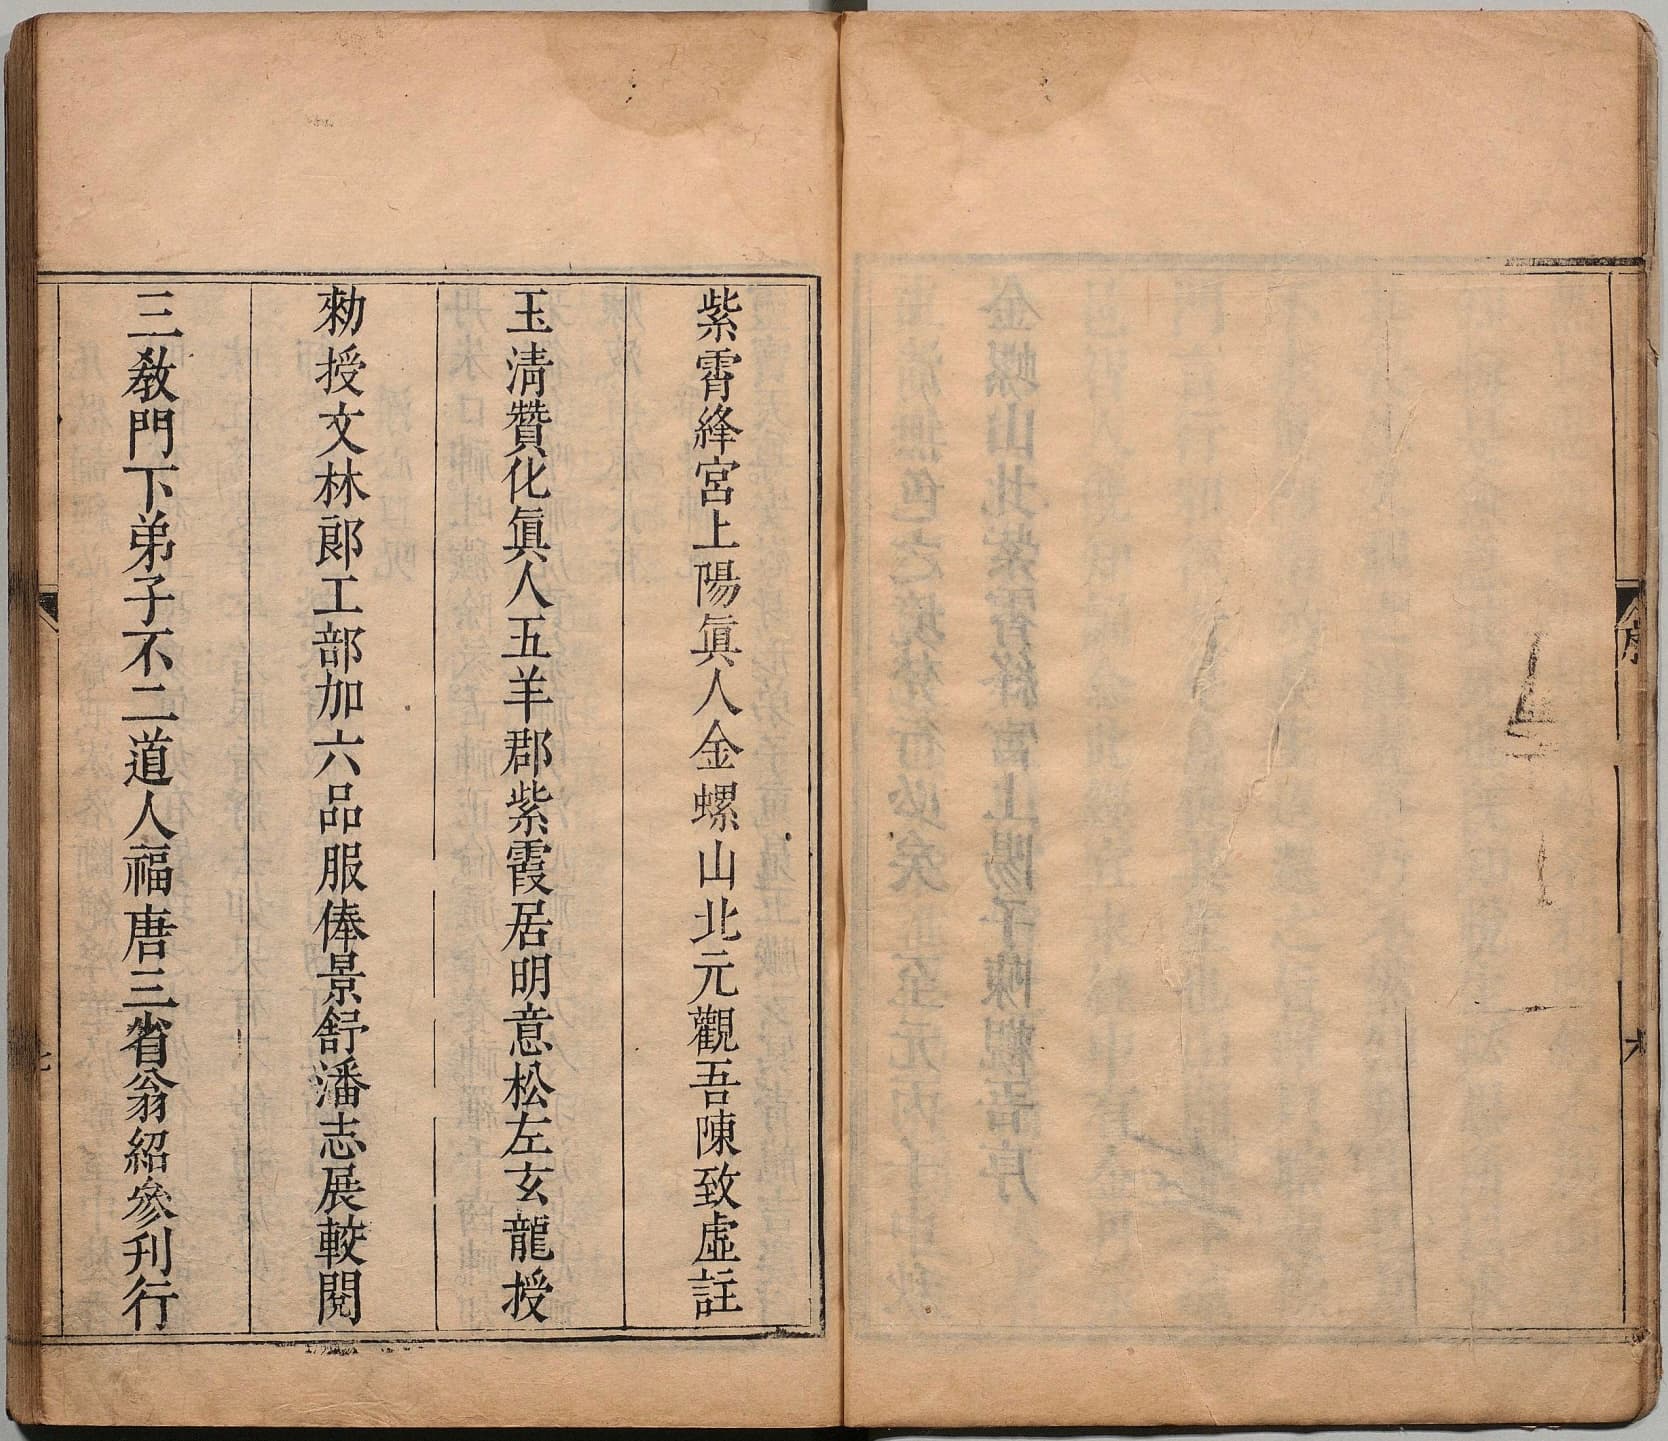 序
六
紫霄絳宮上陽眞人金螺山北元觀吾陳致虛註
玉淸贊化眞人五羊郡紫霞居明意松左玄龍授
勑授文林郎工部加六品服俸景舒潘志展較閱
三敎門下弟子不二道人福唐三省翁紹參刊行
七